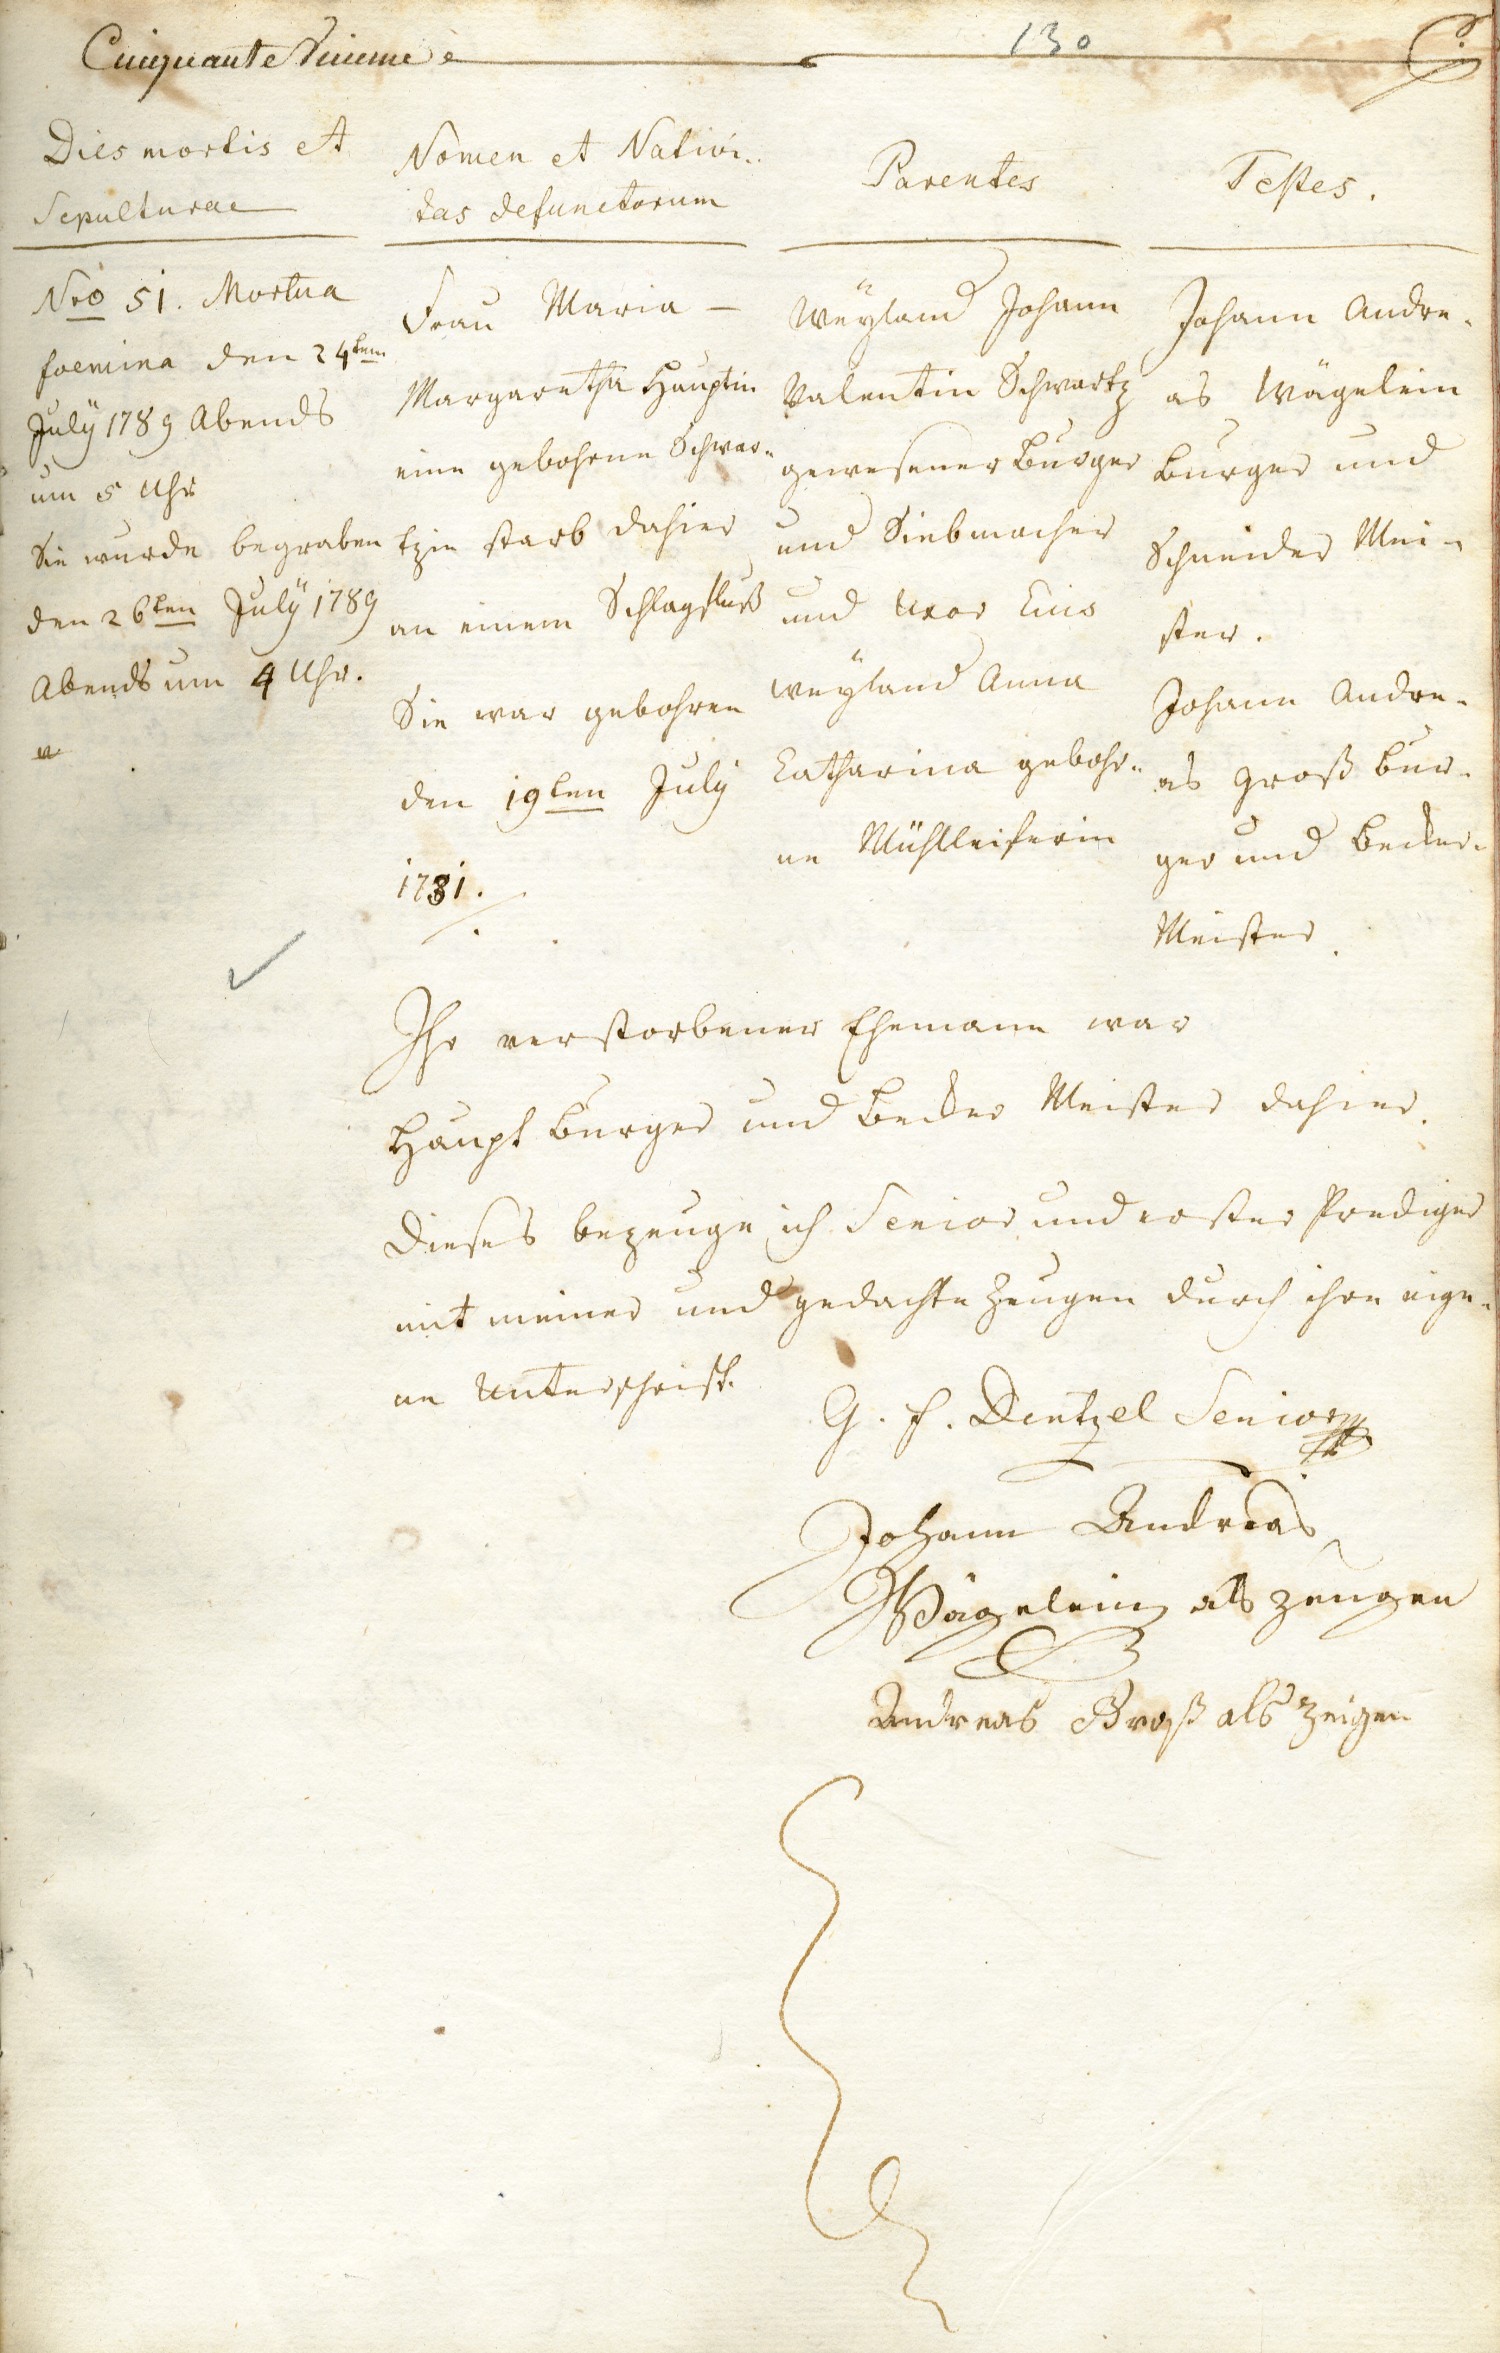 Cinquante Sixieme
130
Dies mortis et
Sepulturae
Nro 51. Mortua
foemina den 24ten
Julÿ 1789 Abends
um 5 Uhr
Sie wurde begraben
den 26ten Julÿ 1789
Abends um 4 Uhr.
Nomen et Nativi..
tas defunctorum
Frau Maria –
Margaretha Hauptin
eine gebohrne Schwar=
tzin starb dahier
an einem Schlagfluß
Sie war gebohren
den 19ten July
1731.
Parentes
Weÿland Johann
Valentin Schwartz
gewesener Burger
und Siebmacher
und Uxor Eius
weÿland Anna
Catharina gebohr=
ne
Testes.
Johann Andre=
as Wägelein
Burger und
Schneider Mei=
ster.
Johann Andre=
as Groß Bur=
ger und Becker=
Meister
Ihr verstorbener Ehemann war
Haupt Burger und Becker Meister dahier.
Dieses bezeuge ich Senior und erster Prediger
mit meiner und gedachte Zeugen durch ihre eige=
ne Unterschrift.
G. F. Dentzel Senior
Johann Andreas
Wägelein als zeugen
Andreas Groß als zeigen